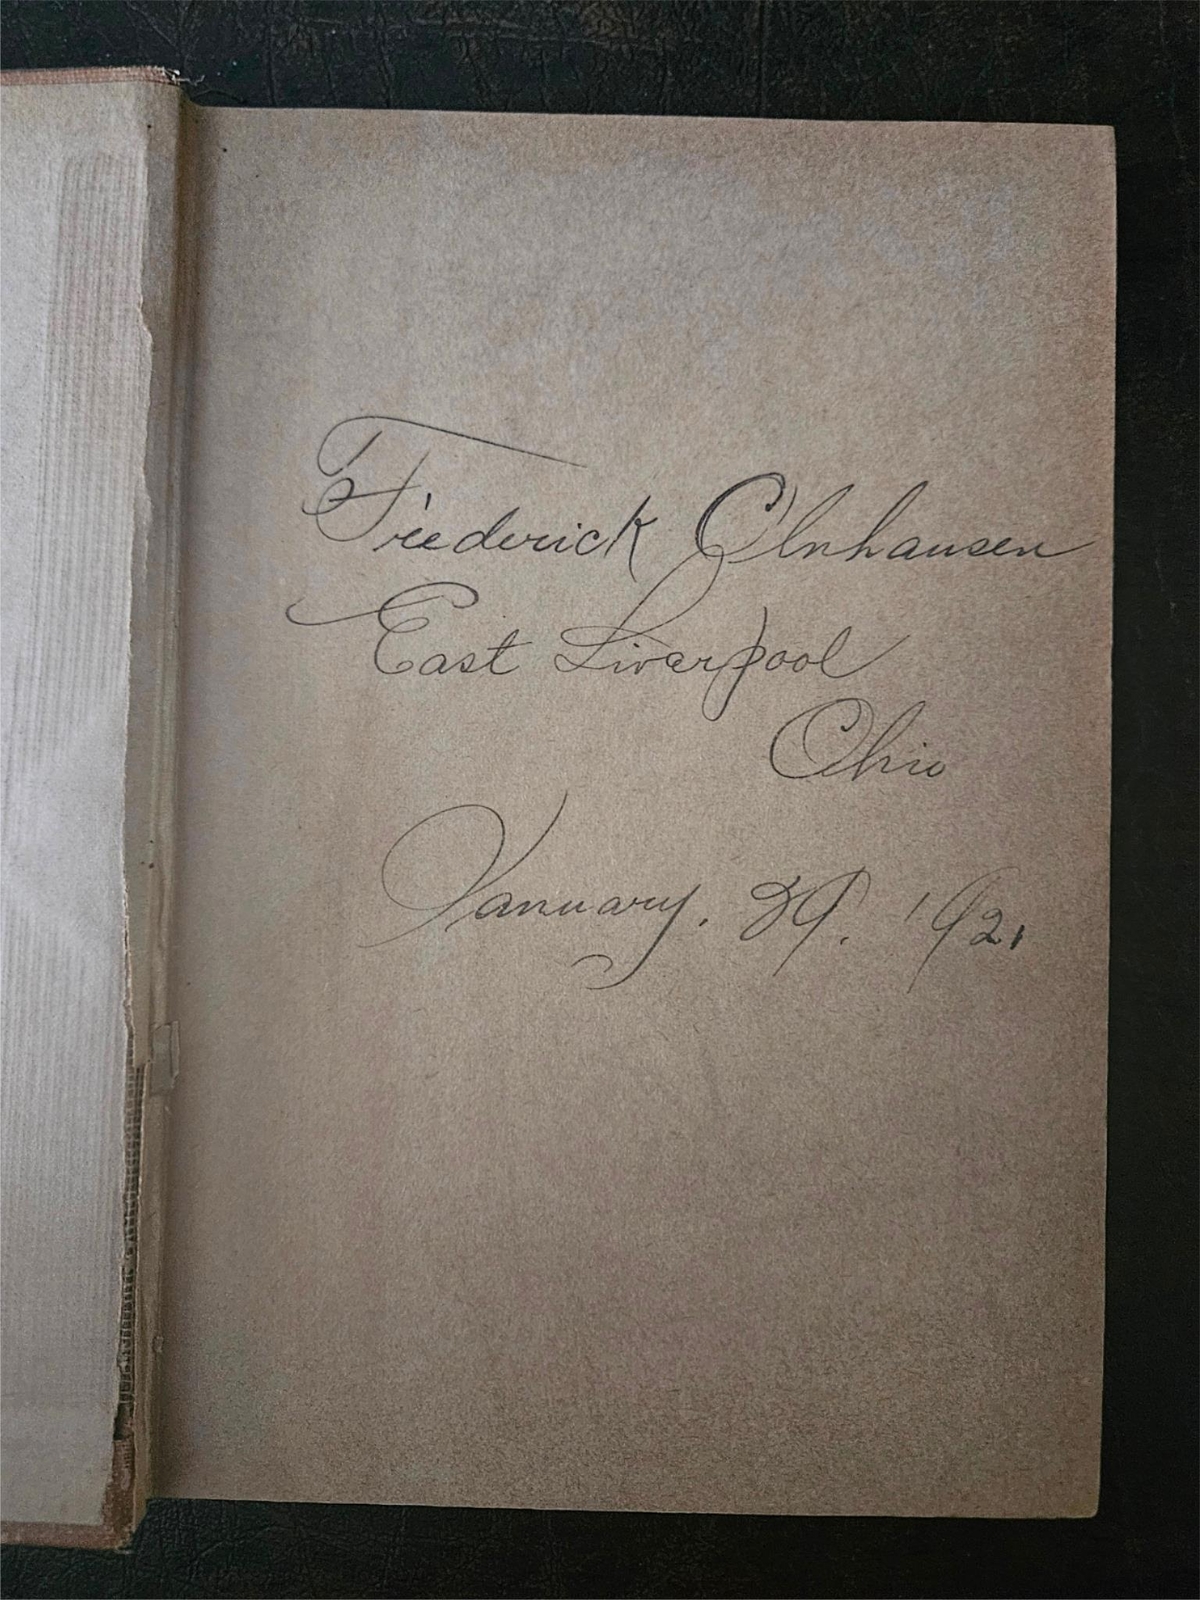 Frederick Olnhausen
East Liverpool
Ohio
January. 29. '92.